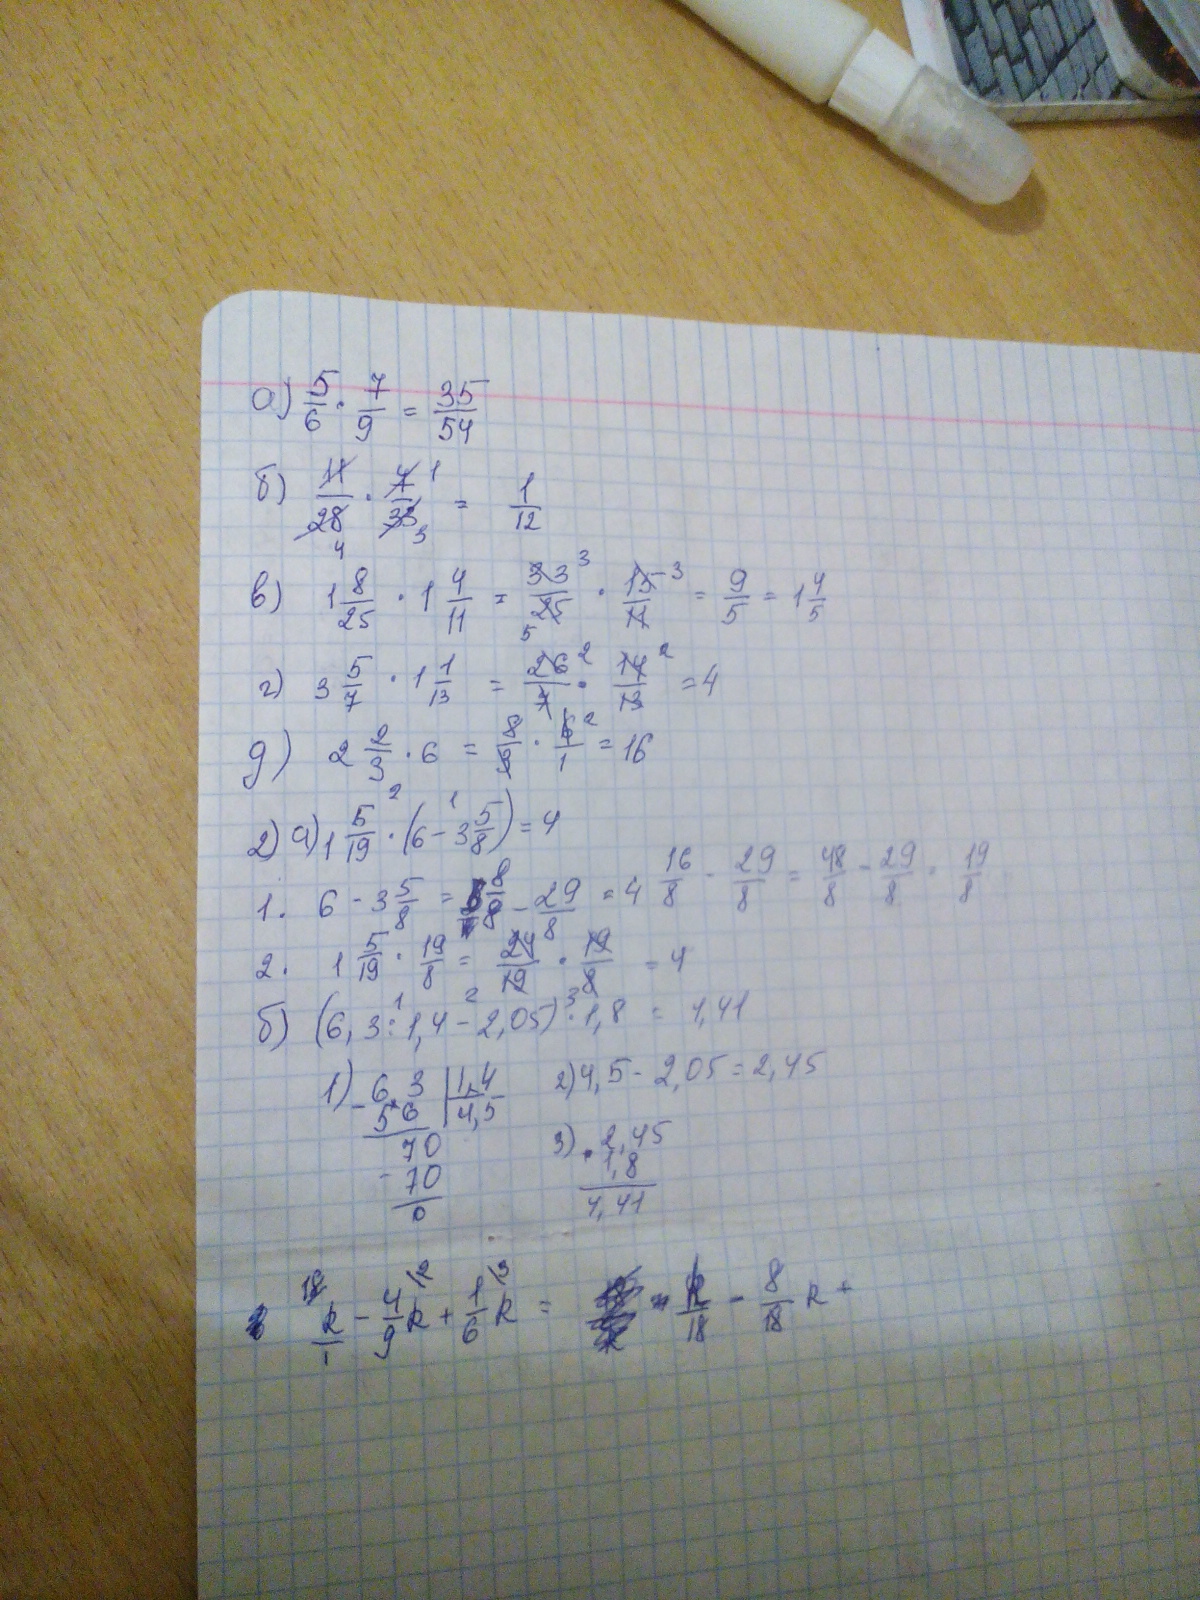 а) 5/6 · 7/9 = 35/54
б) 11/28 4 · 7/33 1 3 = 1/12
в) 1 8/25 · 1 4/11 = 33/25 3 5 · 15/11 3 = 9/5 = 1 4/5
г) 3 5/7 · 1 1/13 = 26/7 2 · 14/13 2 = 4
д) 2 2/3 · 6 = 8/3 · 6/1 2 = 16
2) а) 1 5/19 · 2 (6 - 1 3 5/8) = 4
1. 6 - 3 5/8 = 8/8 - 29/8 = 4 16/8 - 29/8 = 48/8 - 29/8 = 19/8
2. 1 5/19 · 19/8 = 24/19 · 19/8 = 4
б) (6,3 : 1 1,4 - 2 2,05) · 3 1,8 = 4,41
1) 6,3 | 1,4
- 56 | 4,5
70
- 70
0
2) 4,5 - 2,05 = 2,45
3) · 2,45
1,8
4,41
18 k/1 - 4/9 k 2 + 1/6 k 3 = k/18 - 8/18 k +